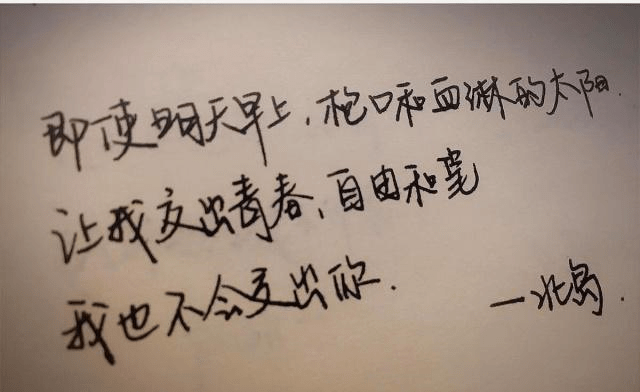 即使明天早上,枪口和血淋的太阳.
让我交出青春、自由和笔
我也不会交出你. —北岛.